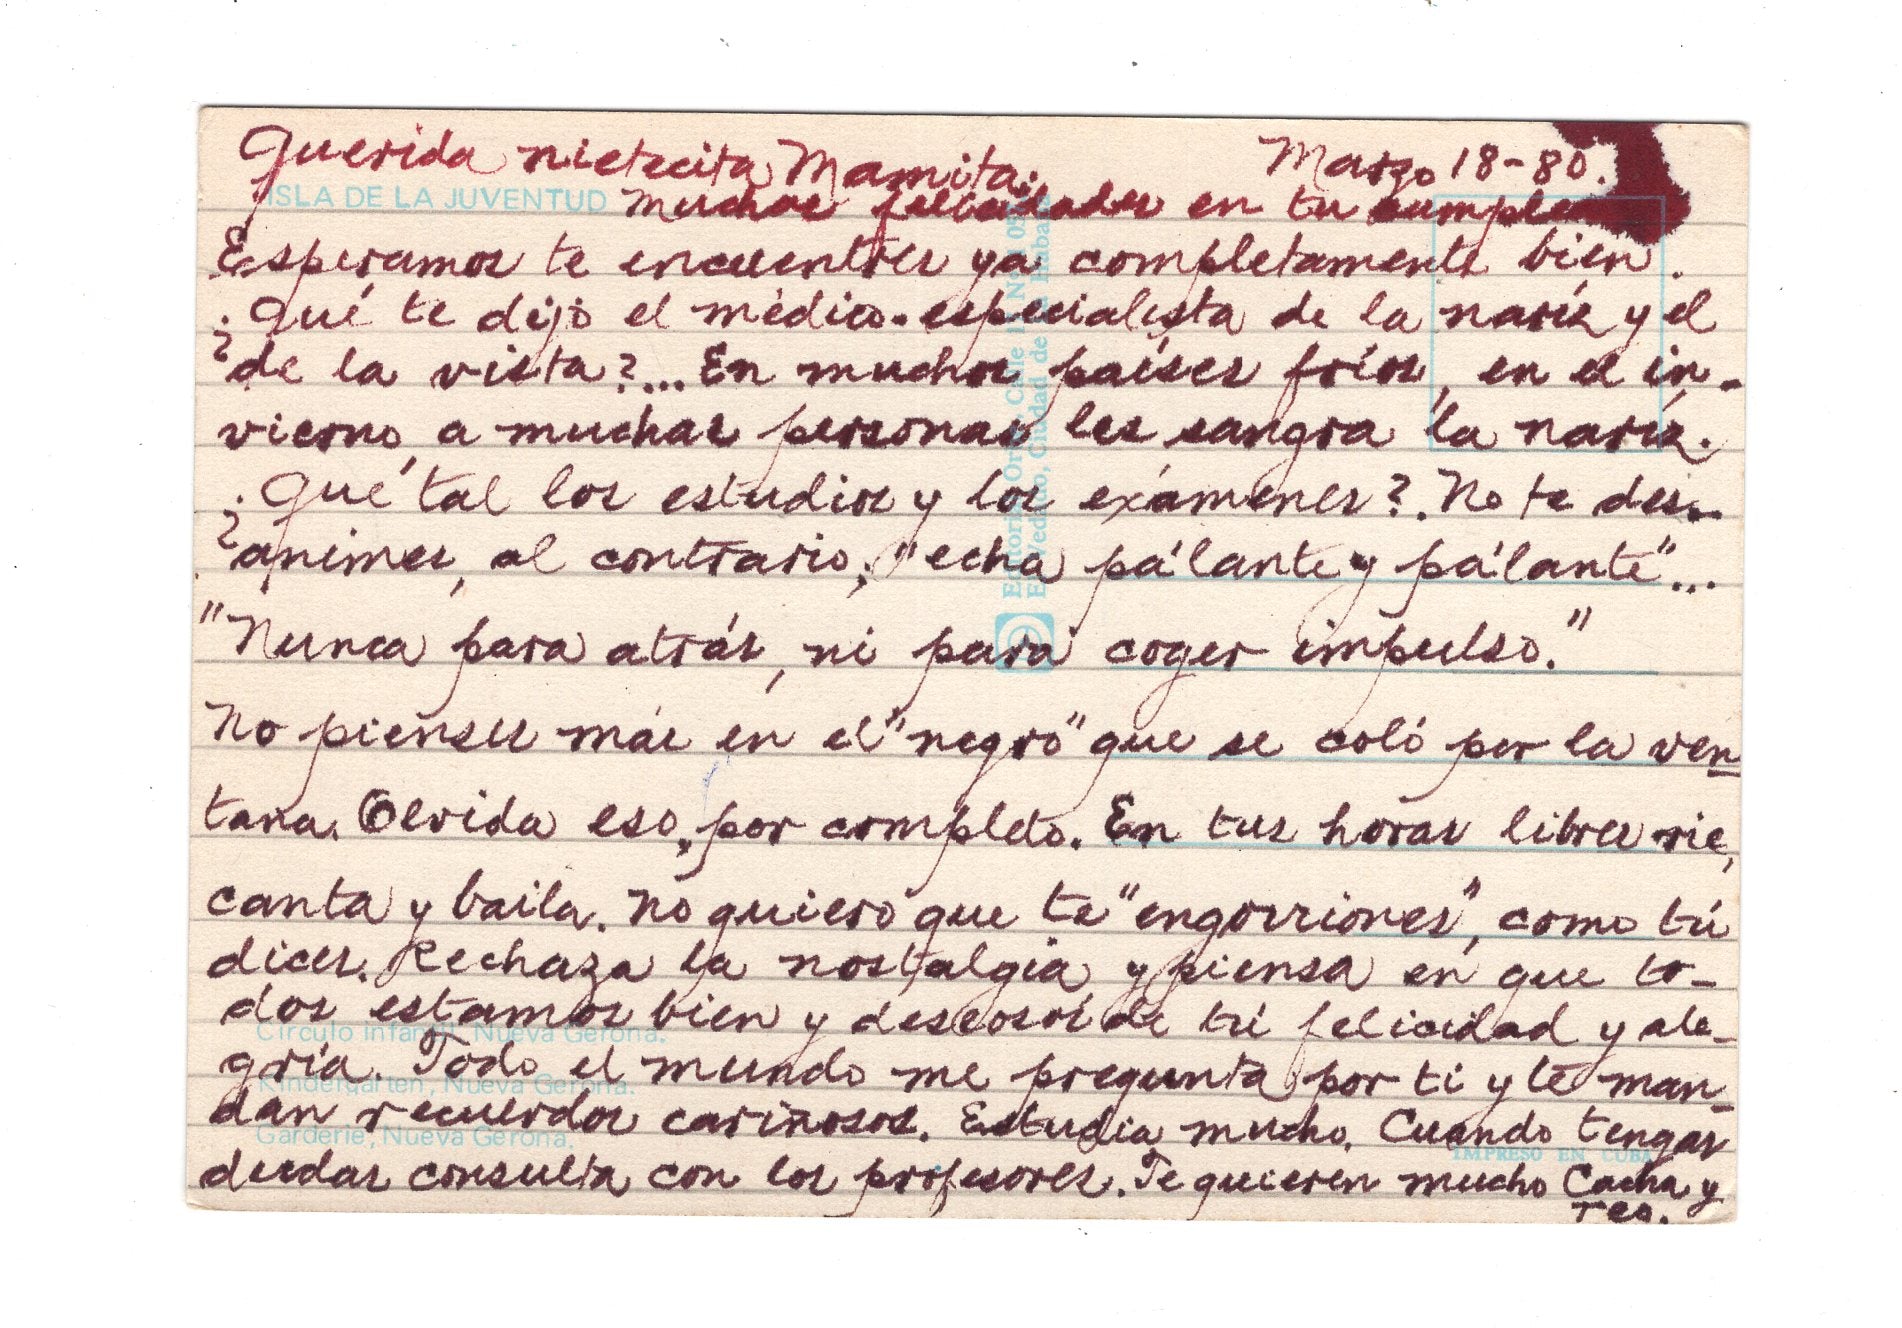 Querida nietecita Mamita: Marzo 18-80.
ISLA DE LA JUVENTUD
Muchas felicidades en tu cumple
Esperamos te encuentres ya completamente bien.
¿Qué te dijo el médico-especialista de la naríz y el
de la vista?... En muchos países fríos, en el in-
vierno, a muchas personas les sangra la naríz.
¿Qué tal los estudios y los exámenes?. No te des-
animes, al contrario, "echa pá'lante y pá'lante"...
"Nunca para atrás, ni para coger impulso."
No pienses más en el "negro" que se coló por la ven-
tana. Olvida eso, por completo. En tus horas libres rie,
canta y baila. No quiero que te "engorriones", como tú
dices. Rechaza la nostalgia y piensa en que to-
dos estamos bien y deseosos de tú felicidad y ale-
gría. Todo el mundo me pregunta por ti y te man-
dan recuerdos cariñosos. Estudia mucho. Cuando tengas
dudas consulta con los profesores. Te quieren mucho Cacha y
Teo.
Círculo infantil, Nueva Gerona.
Kindergarten, Nueva Gerona.
Garderie, Nueva Gerona.
IMPRESO EN CUBA
Editorial Calle
El Vedado, Ciudad de La Habana